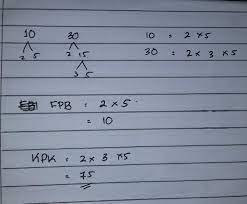 10 30 10 = 2 x 5
2 5 2 15 30 = 2 x 3 x 5
3 5
FPB = 2 x 5
= 10
KPK = 2 x 3 x 5
= 75